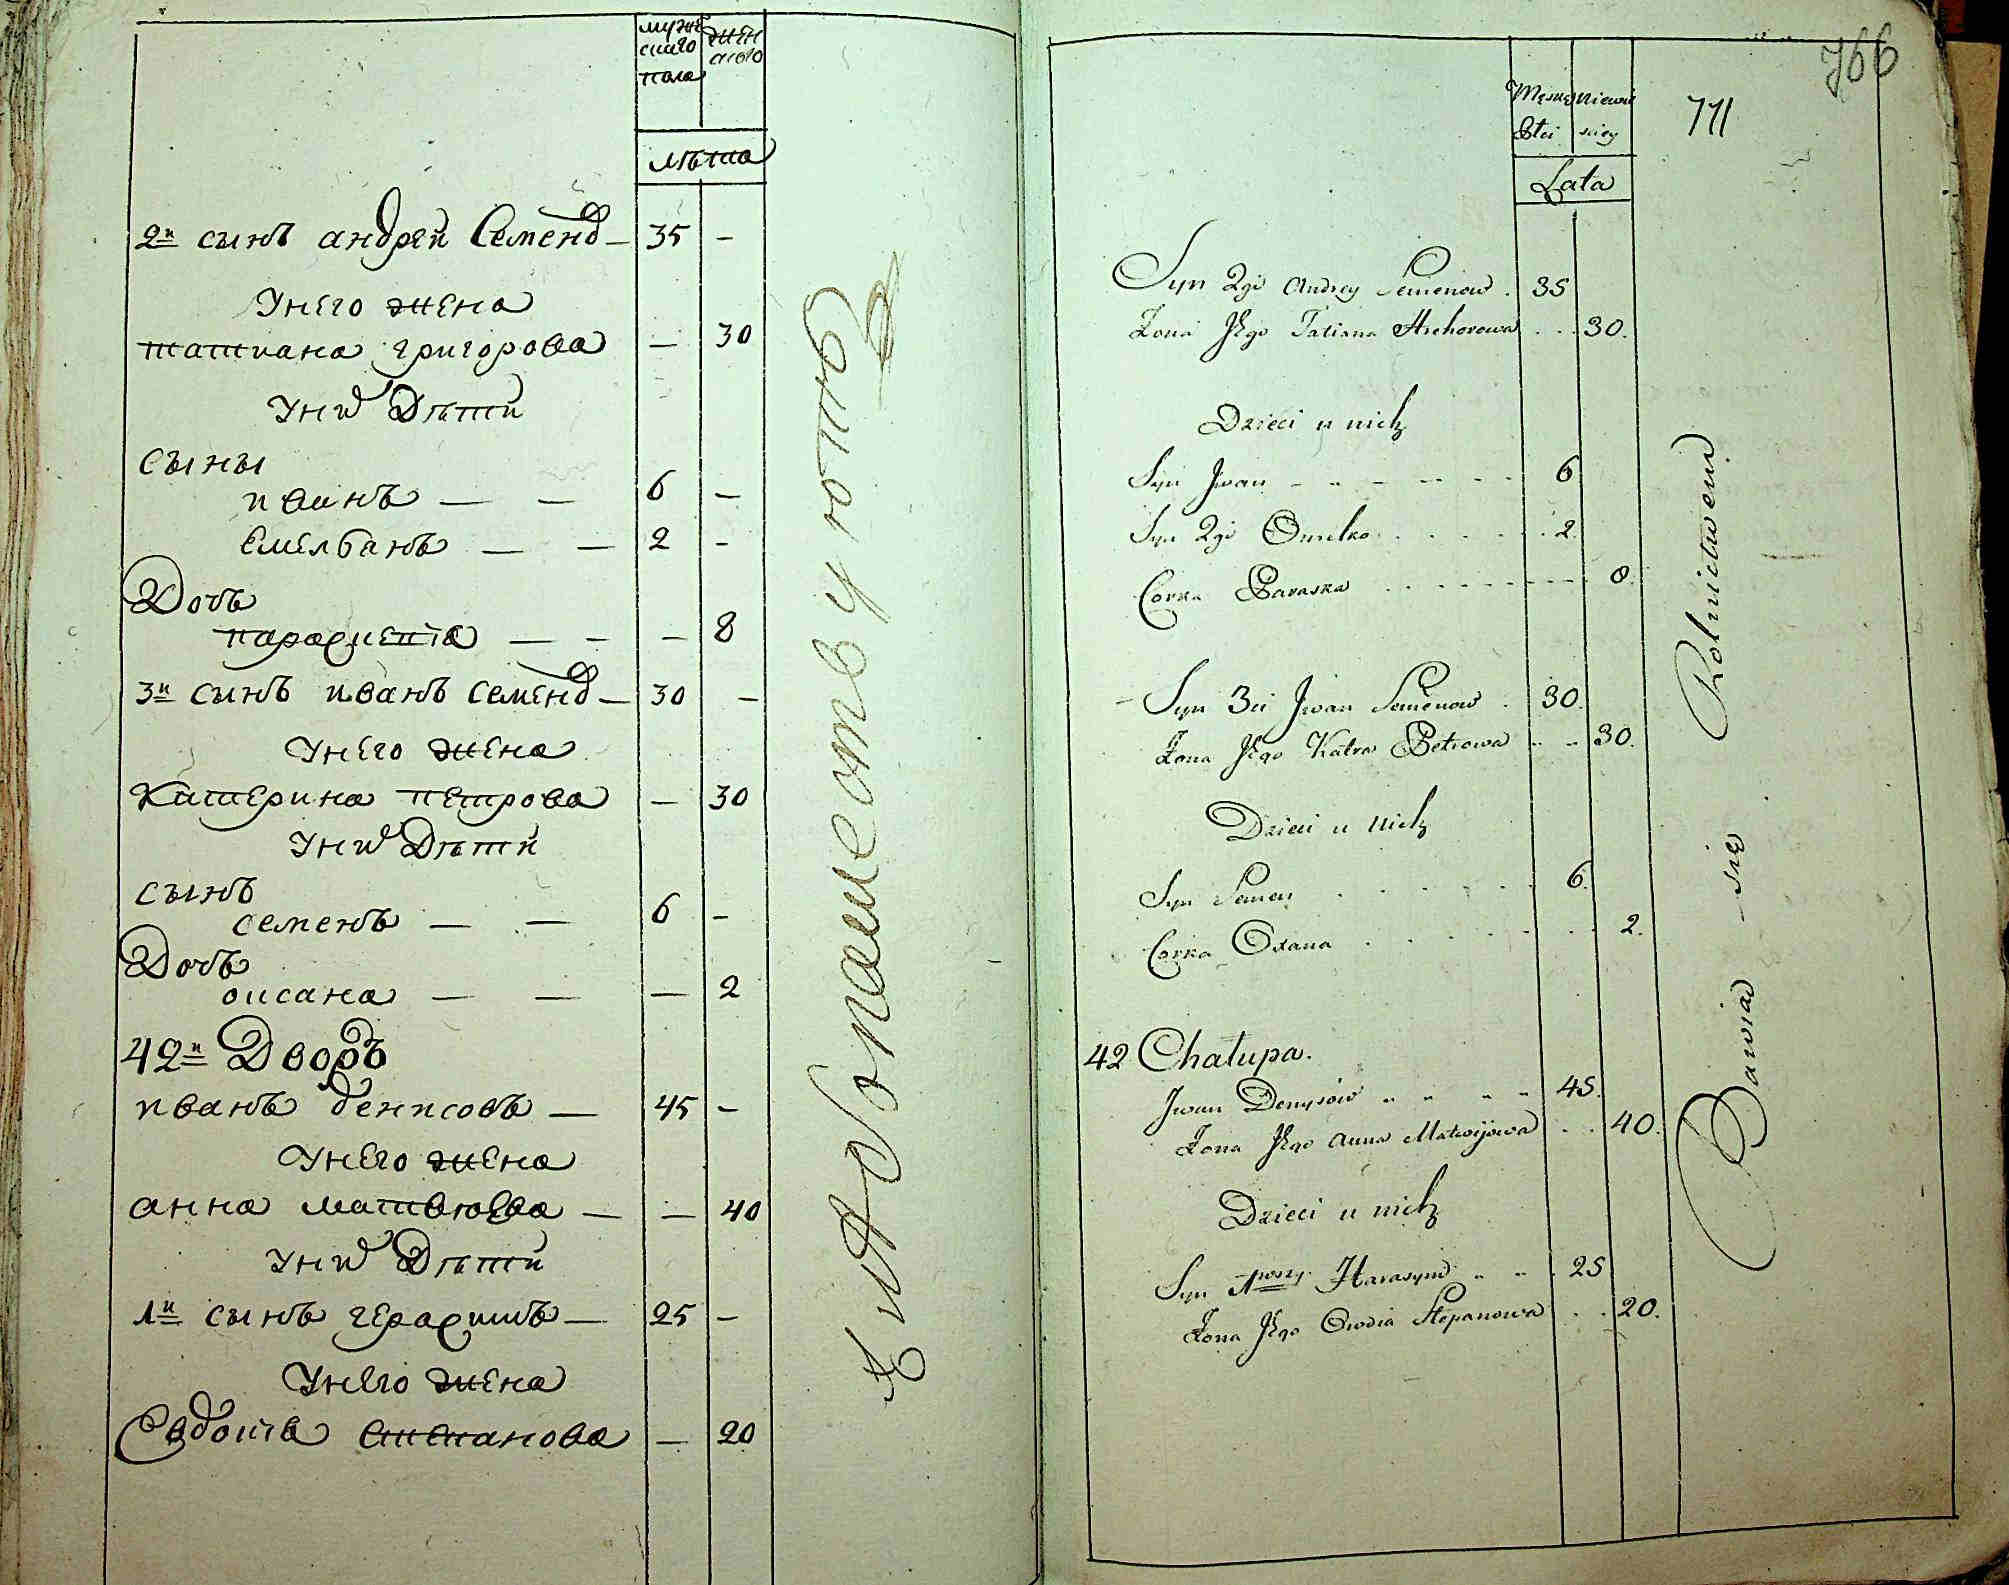 мужескаго пола
женскаго
лѣта
2й сынъ андрей Семеновъ — 35 —
У него жена
татиана григорова — 30
У ни<sup>х</sup> Дѣти
сыны
иванъ — — 6 —
Емелианъ — — 2 —
Дочь
параскевiа — — — 8
3й сынъ иванъ Семеновъ — 30 —
У него жена
Катерина петрова — 30
У ни<sup>х</sup> Дѣти
сынъ
семенъ — — 6 —
Дочь
оксана — — — 2
42й Дворъ
иванъ денисовъ — 45 —
У него жена
анна матвюева — — 40
У ни<sup>х</sup> Дѣти
1й сынъ герасимъ — 25 —
У него жена
Евдокiа степанова — 20
766
771
Męskiey Płci
Niewieściey
Lata
Syn 2gi Andrey Semenow . 35
Zona Jego Tatiana Hrehorowa . . . 30.
Dzieci u nich
Syn Jwan - - - - - - 6
Syn 2gi Omelko . . . . . . 2
Corka Paraska . . . . . . 8.
Syn 3ci Jwan Semenow . 30.
Zona Jego Katra Petrowa . . 30.
Dzieci u nich
Syn Semen . . . . . . 6.
Corka Oxana . . . . . . . 2.
42 Chałupa.
Jwan Denysow " " " " 45.
Zona Jego Anna Matwijowa . . 40.
Dzieci u nich
Syn 1wszy Harasym " " . 25
Zona Jego Owdia Stepanowa . . 20.
Bawią się Rolnictwem